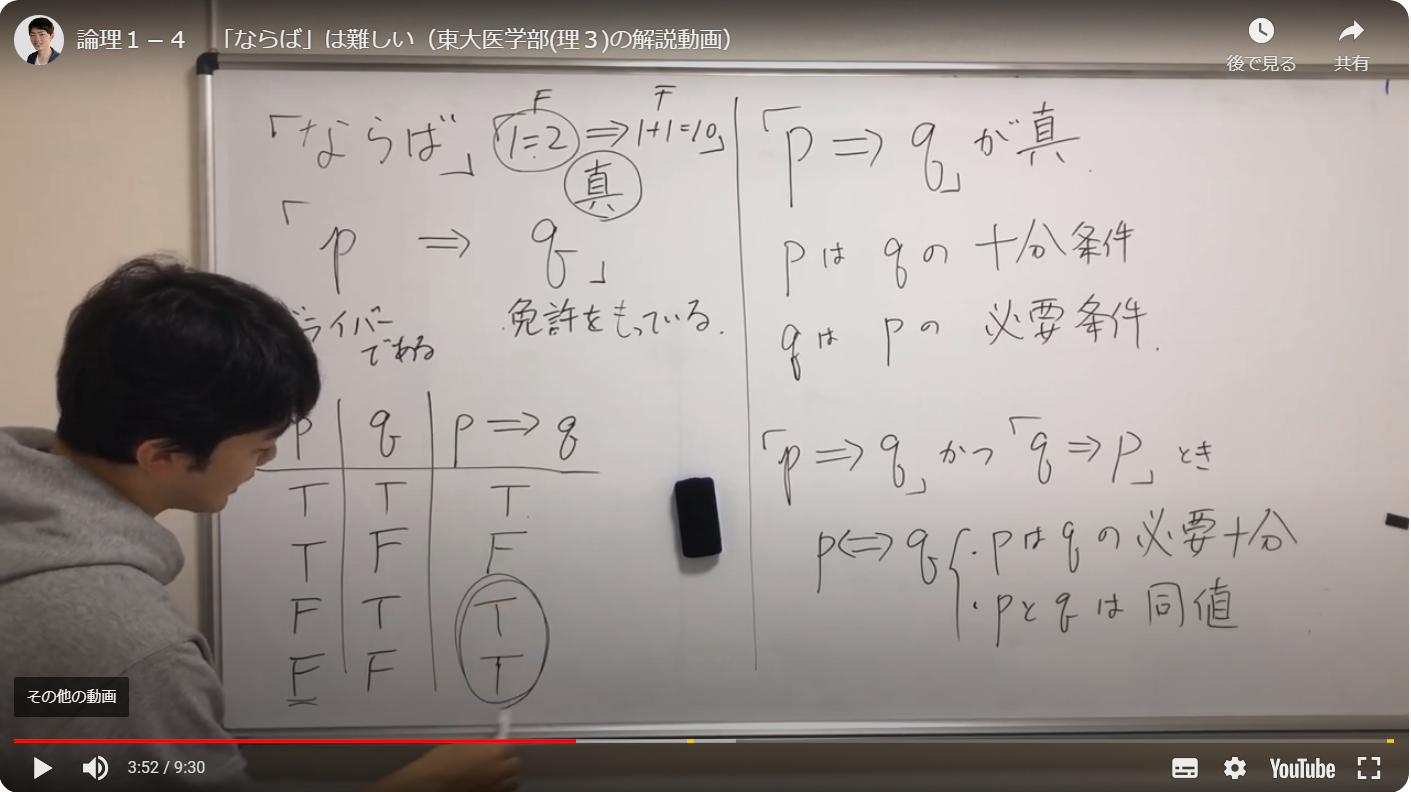 論理１－４ 「ならば」は難しい（東大医学部(理３)の解説動画）
後で見る
共有
F F
「ならば」「1=2 ⇒ 1+1=10」
真
「p ⇒ q」
ライバー
である
免許をもっている.
p q p ⇒ q
T T T
T F F
F T T
F F T
「p ⇒ q」が真
pはqの十分条件
qはpの必要条件.
「p ⇒ q」かつ「q ⇒ p」とき
p⇔q ・pはqの必要十分
・pとqは同値
その他の動画
3:52 / 9:30
YouTube